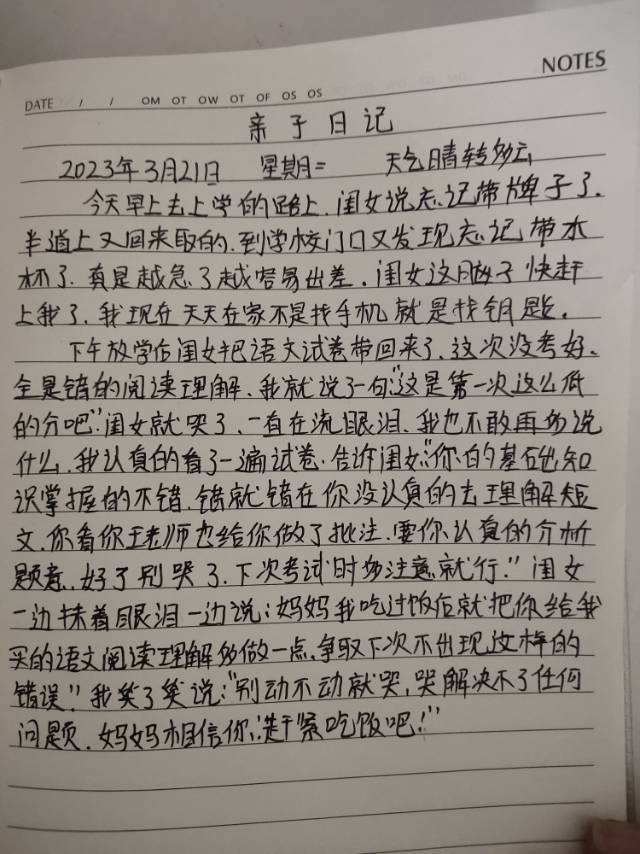 NOTES
DATE / / OM OT OW OT OF OS OS
亲子日记
2023年3月21日 星期二 天气晴转多云
今天早上去上学的路上,闺女说忘记带牌子了,
半道上又回来取的,到学校门口又发现忘记带水
杯了,真是越急了越容易出差,闺女这脑子快赶
上我了,我现在天天在家不是找手机就是找钥匙。
下午放学后闺女把语文试卷带回来了,这次没考好,
全是错的阅读理解,我就说了一句:"这是第一次这么低
的分吧"闺女就哭了,一直在流眼泪,我也不敢再多说
什么,我认真的看了一遍试卷,告诉闺女:"你的基础知
识掌握的不错,错就错在你没认真的去理解短
文,你看你王老师也给你做了批注,要你认真的分析
题意,好了别哭了,下次考试时多注意就行。"闺女
一边抹着眼泪一边说:妈妈我吃过饭后就把你给我
买的语文阅读理解多做一点,争取下次不出现这样的
错误!"我笑了笑说:"别动不动就哭,哭解决不了任何
问题,妈妈相信你,赶紧吃饭吧!"